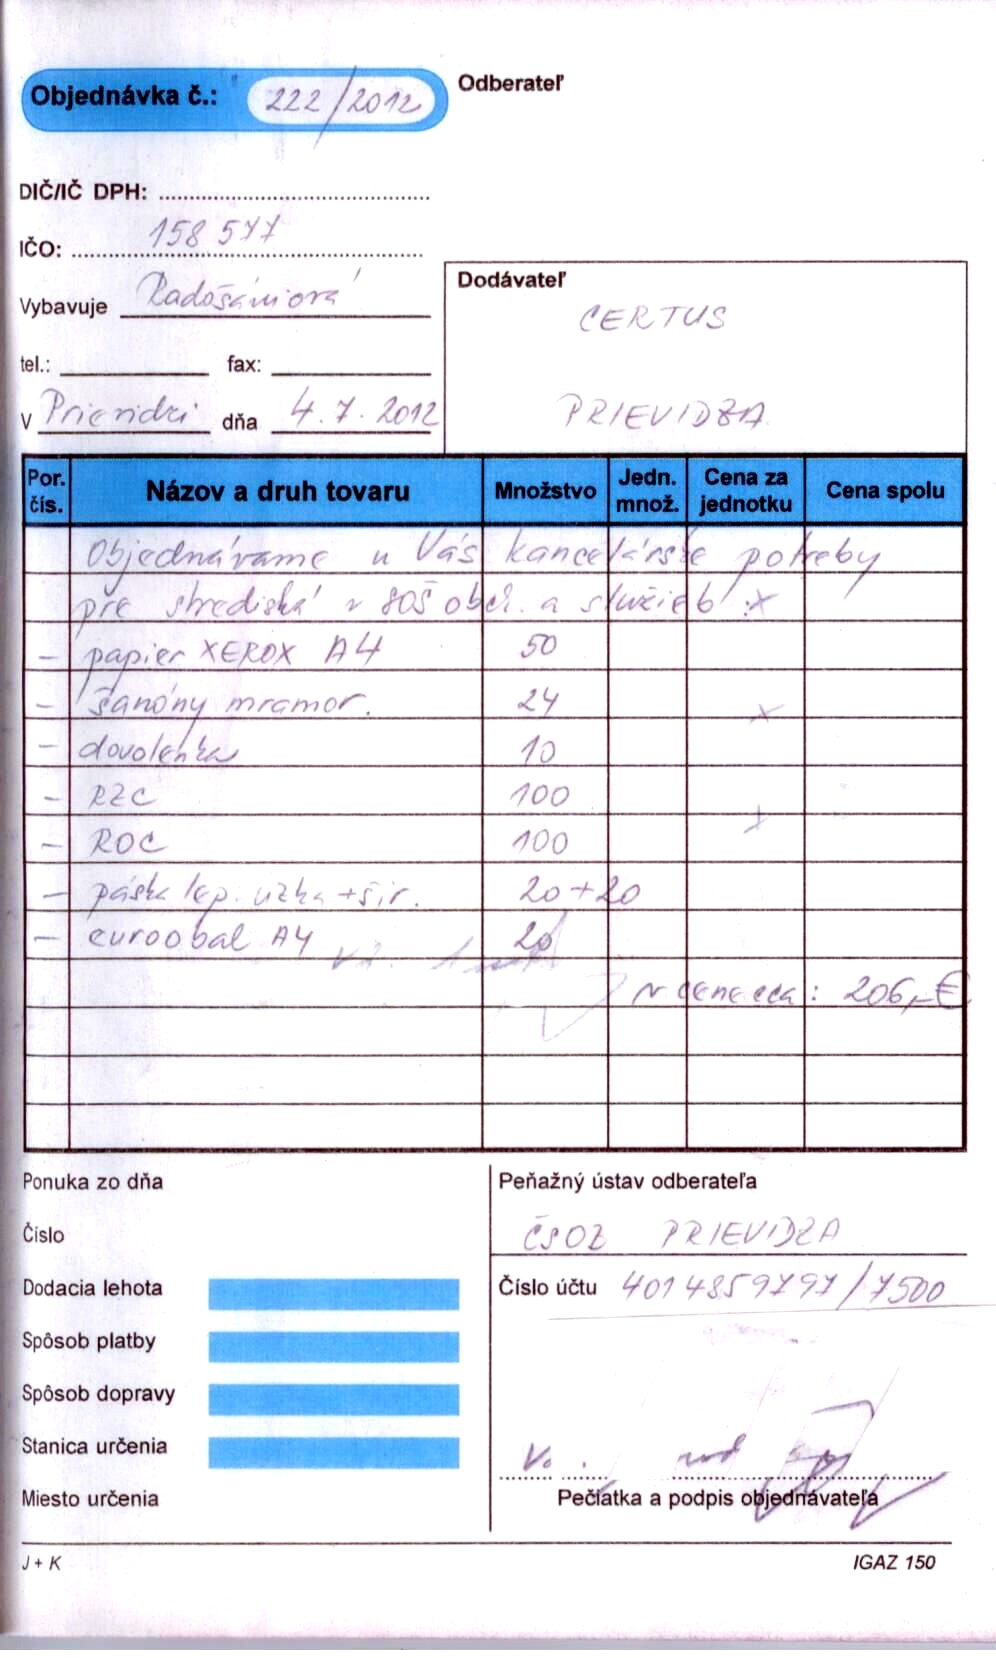 Objednávka č.: 222/2012
Odberateľ
DIČ/IČ DPH:
IČO: 158 577
Vybavuje Radošániová
tel.: fax:
V Prievidzi dňa 4.7.2012
Dodávateľ
CERTUS
PRIEVIDZA
Por. čís. Názov a druh tovaru Množstvo Jedn. množ. Cena za jednotku Cena spolu
Objednávame u Vás kancelárske potreby
pre strediská v SOŠ obch. a služieb :
- papier XEROX A4 50
- šanóny mramor. 24
- dovolenka 10
- RZC 100
- ROC 100
- páska lep. úzka + šir. 20+20
- euroobal A4 20
v cene cca : 206,-€
Ponuka zo dňa
Číslo
Dodacia lehota
Spôsob platby
Spôsob dopravy
Stanica určenia
Miesto určenia
Peňažný ústav odberateľa
ČSOB PRIEVIDZA
Číslo účtu 4014859797/7500
Pečiatka a podpis objednávateľa
J + K
IGAZ 150